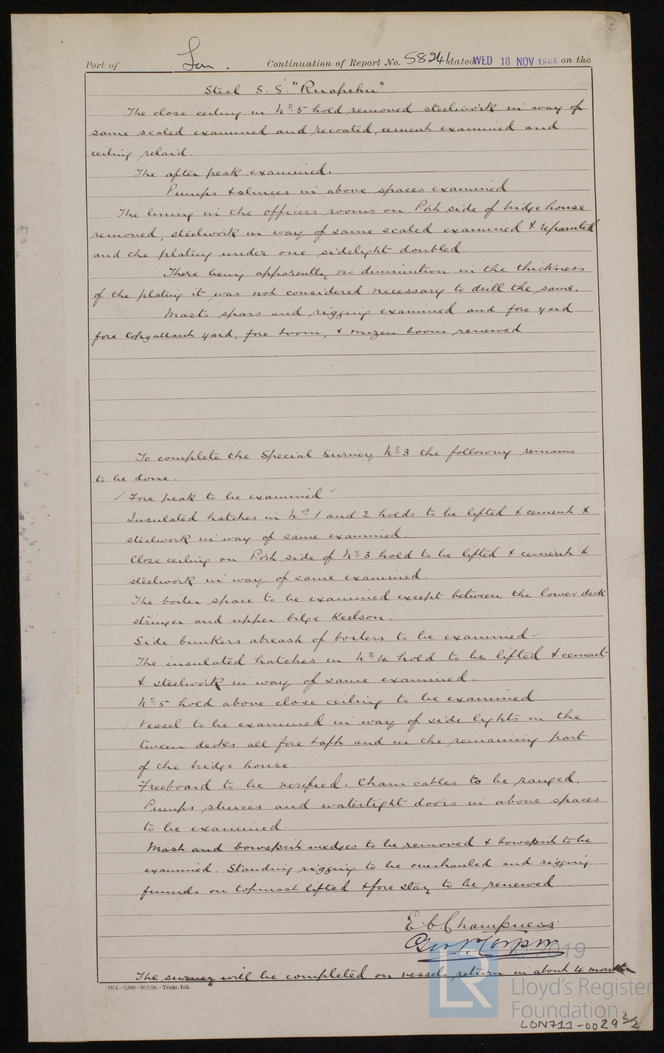 Port of Lon. Continuation of Report No. 58241 dated WED 18 NOV 1896 on the
Steel S.S. "Ruapehu"
The close ceiling in No 5 hold removed steelwork in way of
same scaled examined and recoated, cement examined and
ceiling relaid.
The after peak examined.
Pumps & sluices in above spaces examined
The lining in the officers rooms on Port side of bridge house
removed, steelwork in way of same scaled examined & repainted
and the plating under one sidelight doubled
There being apparently no diminution in the thickness
of the plating it was not considered necessary to drill the same.
Masts spars and rigging examined and fore yard
fore topgallant yard, fore boom, & mizen boom renewed
To complete the Special Survey No 3 the following remains
to be done.
Fore peak to be examined
Insulated hatches in No 1 and 2 holds to be lifted & cement &
steelwork in way of same examined.
Close ceiling on Port side of No 3 hold to be lifted & cement &
steelwork in way of same examined.
The boiler space to be examined except between the lower deck
stringer and upper bilge keelson.
Side bunkers abreast of boilers to be examined
The insulated hatches in No 4 hold to be lifted & cement
& steelwork in way of same examined.
No 5 hold above close ceiling to be examined
Vessel to be examined in way of side lights in the
tween decks all fore & aft and in the remaining part
of the bridge house.
Freeboard to be verified. Chain cables to be ranged.
Pumps sluices and watertight doors in above spaces
to be examined.
Mast and bowsprit wedges to be removed & bowsprit to be
examined. Standing rigging to be overhauled and rigging
funnels on topmast lifted & fore stay to be renewed
E. C. Champness
The survey will be completed on vessels return in about 4 months
1874.—2,000—16/3/96.—Trans. Ink.
© 2019
LR
Lloyd's Register
Foundation
LON711-0029 2/2